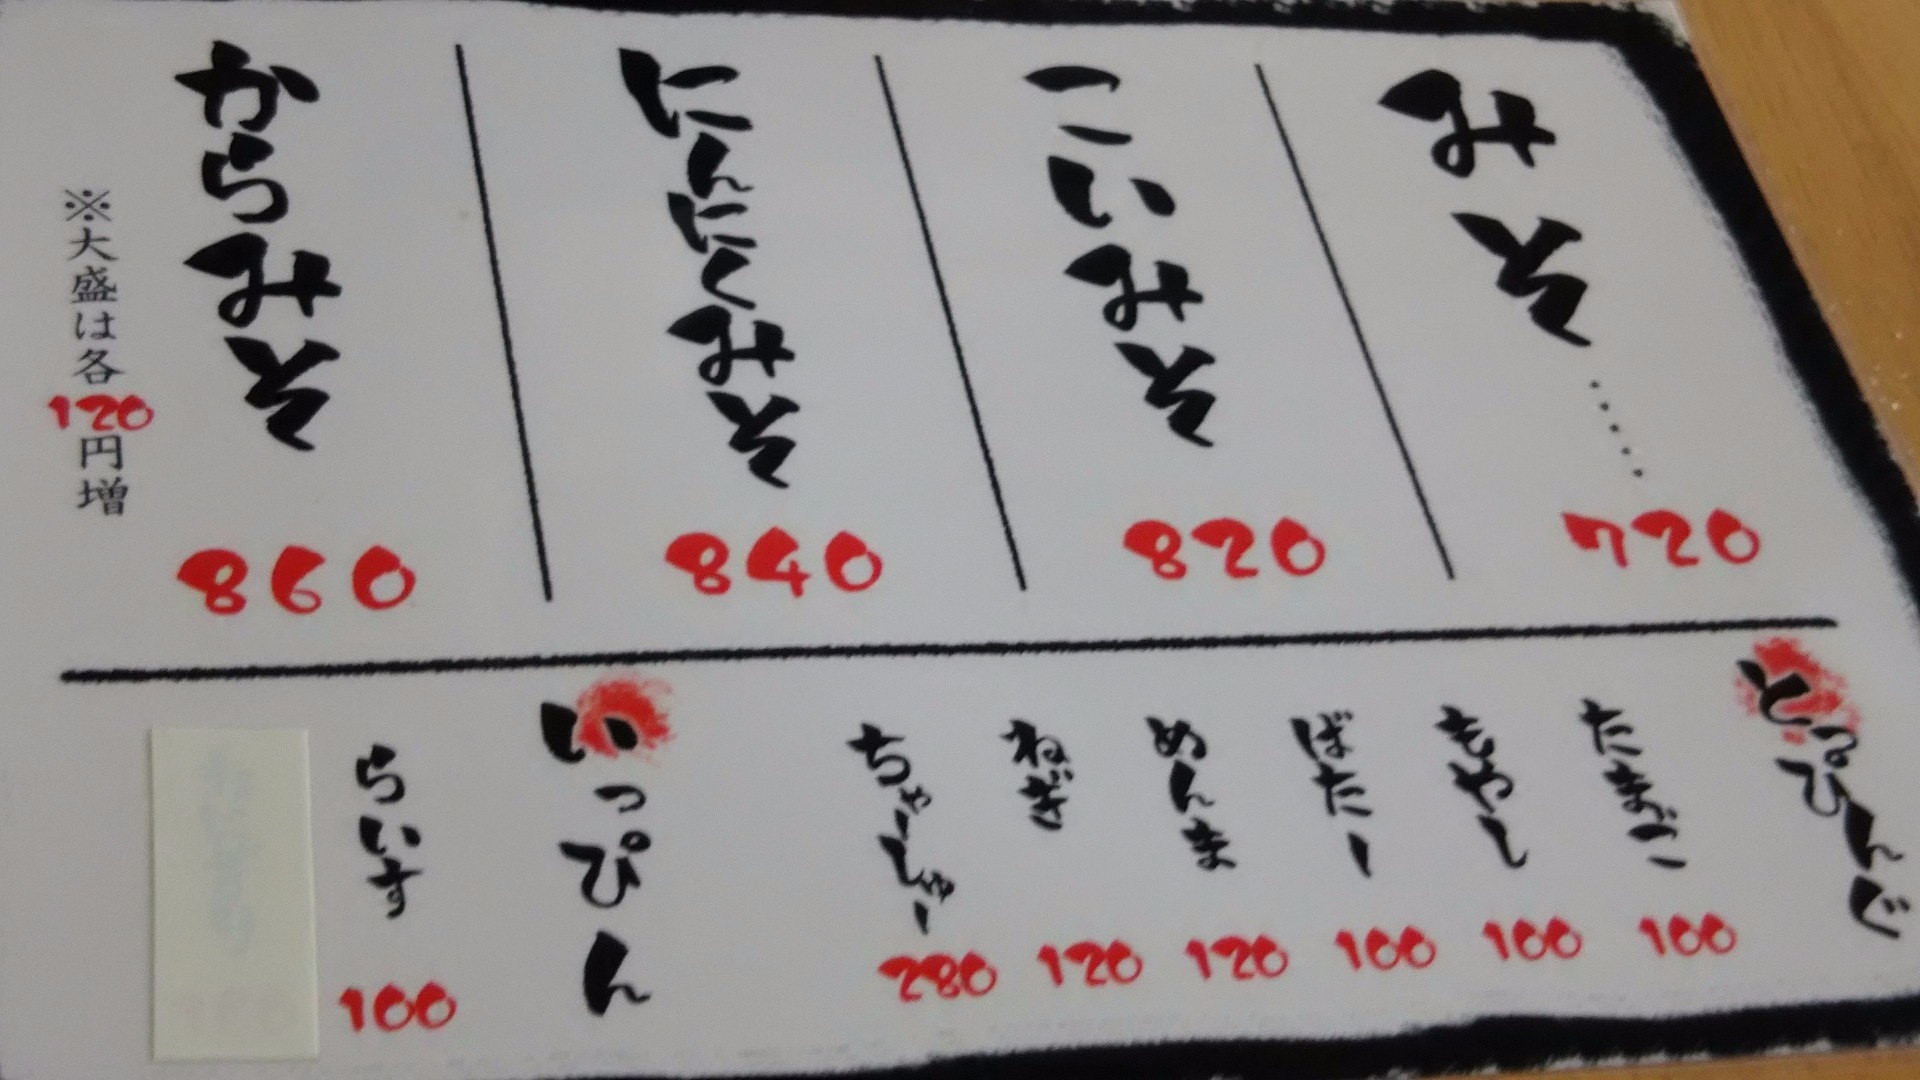 みそ・・・・・720
こいみそ 820
にんにくみそ 840
からみそ 860
※大盛は各120円増
とっぴんぐ
たまご 100
もやし 100
ばたー 100
めんま 120
ねぎ 120
ちゃーしゅー 280
いっぴん
らいす 100